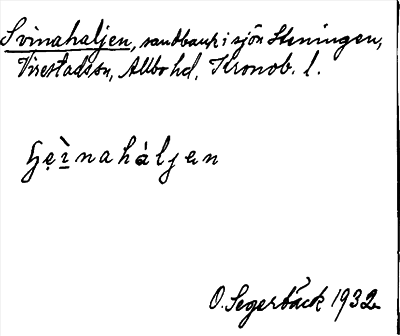 Svinahaljen, sandbank i sjön Steningen,
Virestadssn, Allbo hd, Kronob. l.
O. Segerbäck 1932